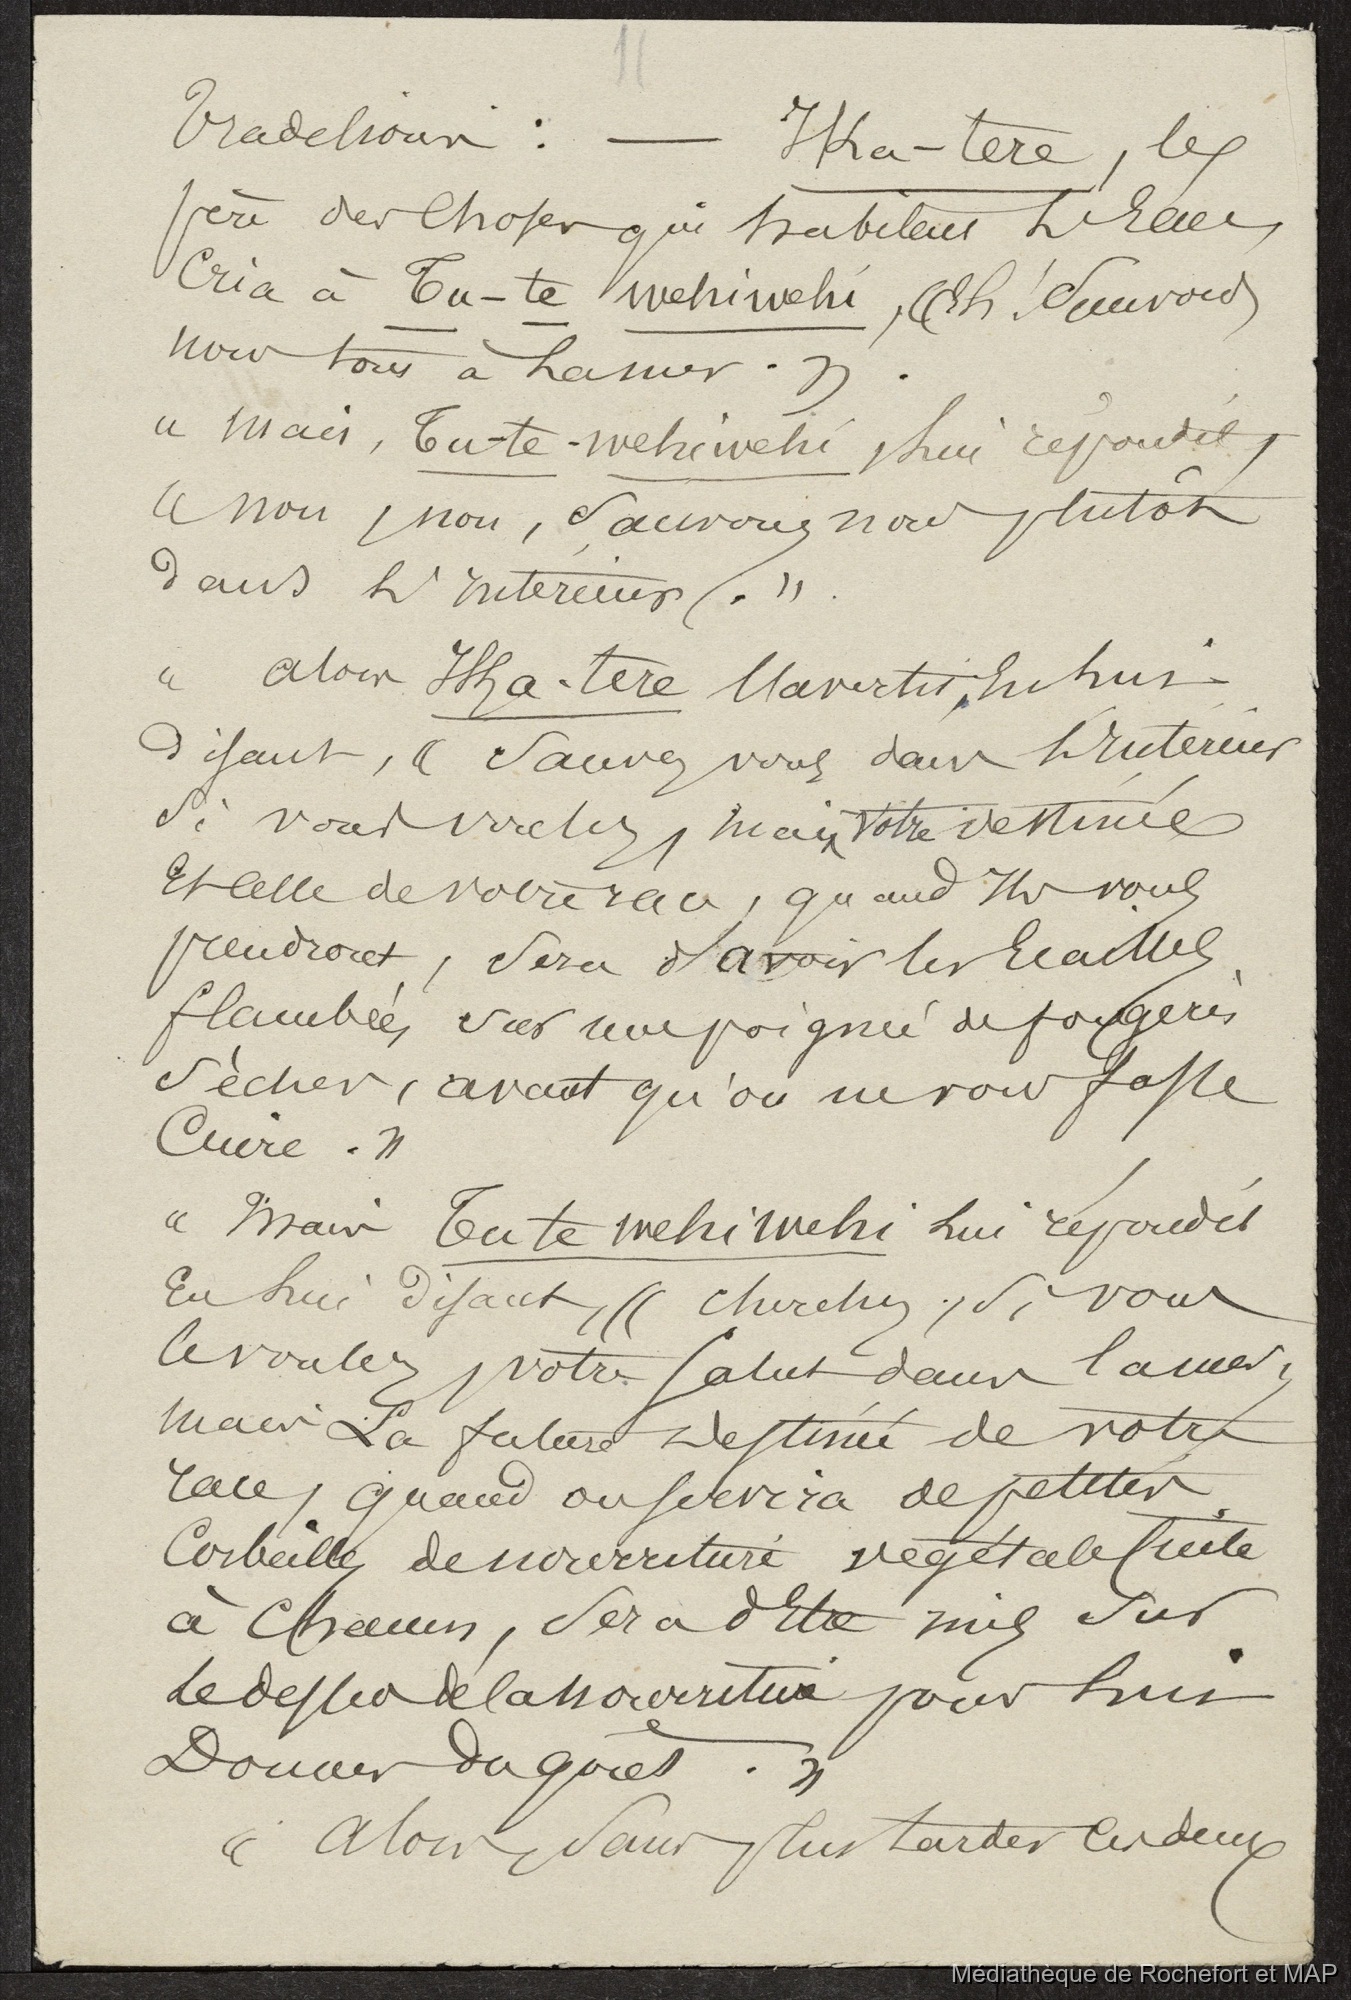 11
Tradetion : — Ika-tere, le
père des choses qui habitent L'Eau,
Cria à Tu-te wehiwehi, "Eh! Sauvons
nous tous à La mer."
" Mais, Tu-te-wehiwehi, Lui répondit,
" non, non, Sauvons nous plutôt
dans L'Intérieur."
" alors Ika-tere l'avertit, En Lui
disant, " Sauvez vous dans L'Intérieur
Si vous voulez, mais votre destinée
Et celle de votre race, quand Ils vous
prendront, Sera d'avoir les Ecailles
flambées sur une poignée de fougeres
Séches, avant qu'on ne vous fasse
Cuire."
" Mais Tu te wehiwehi Lui répondit
En Lui disant, " cherchez, Si vous
le voulez, votre Salut dans la mer,
mais La future Destinée de votre
race, quand on servira de petites
Corbeilles de nourriture végétale Cuite
à Chacun, Sera d'Etre mis Sur
Le dessus de la nourriture pour Lui
Donner du goût."
" Alors, Sans plus tarder les deux
Médiathèque de Rochefort et MAP